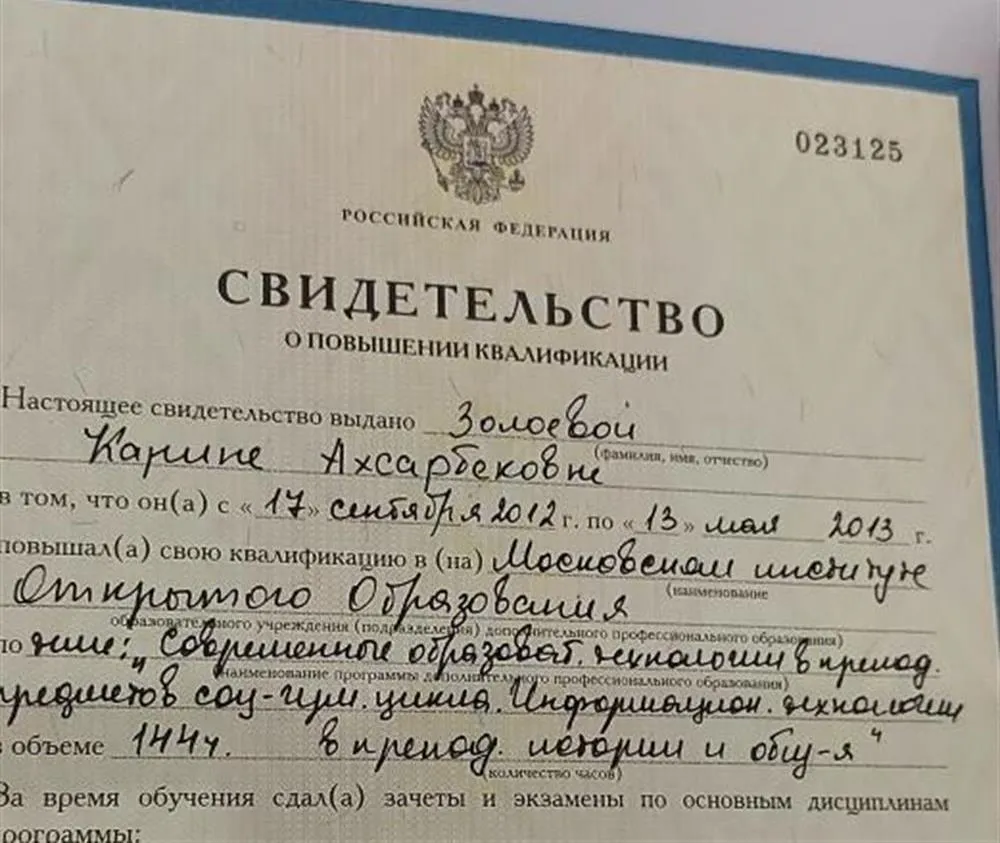 023125
РОССИЙСКАЯ ФЕДЕРАЦИЯ
СВИДЕТЕЛЬСТВО
О ПОВЫШЕНИИ КВАЛИФИКАЦИИ
Настоящее свидетельство выдано Золоевой
(фамилия, имя, отчество)
Карине Ахсарбековне
в том, что он(а) с «17» сентября 2012 г. по «13» мая 2013 г.
повышал(а) свою квалификацию в (на) Московском институте
(наименование
Открытого Образования
образовательного учреждения (подразделения) дополнительного профессионального образования)
по теме: „Современные образоват. технологии в препод.
(наименование программы дополнительного профессионального образования)
предметов соц-гум. цикла. Информацион. технологии
в объеме 144ч. в препод. истории и общ-я"
(количество часов)
За время обучения сдал(а) зачеты и экзамены по основным дисциплинам
программы: